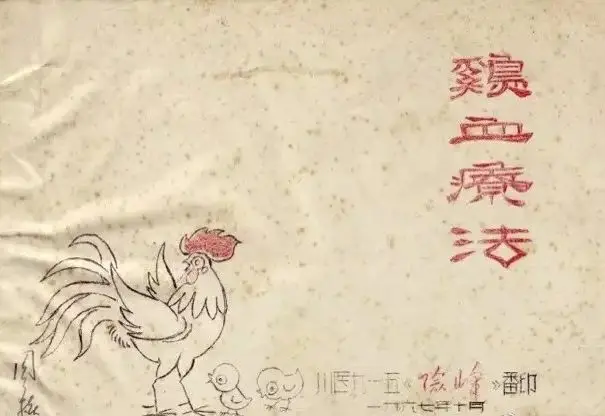 鷄血療法
川医九一五《险峰》翻印
一九六七年十月
周